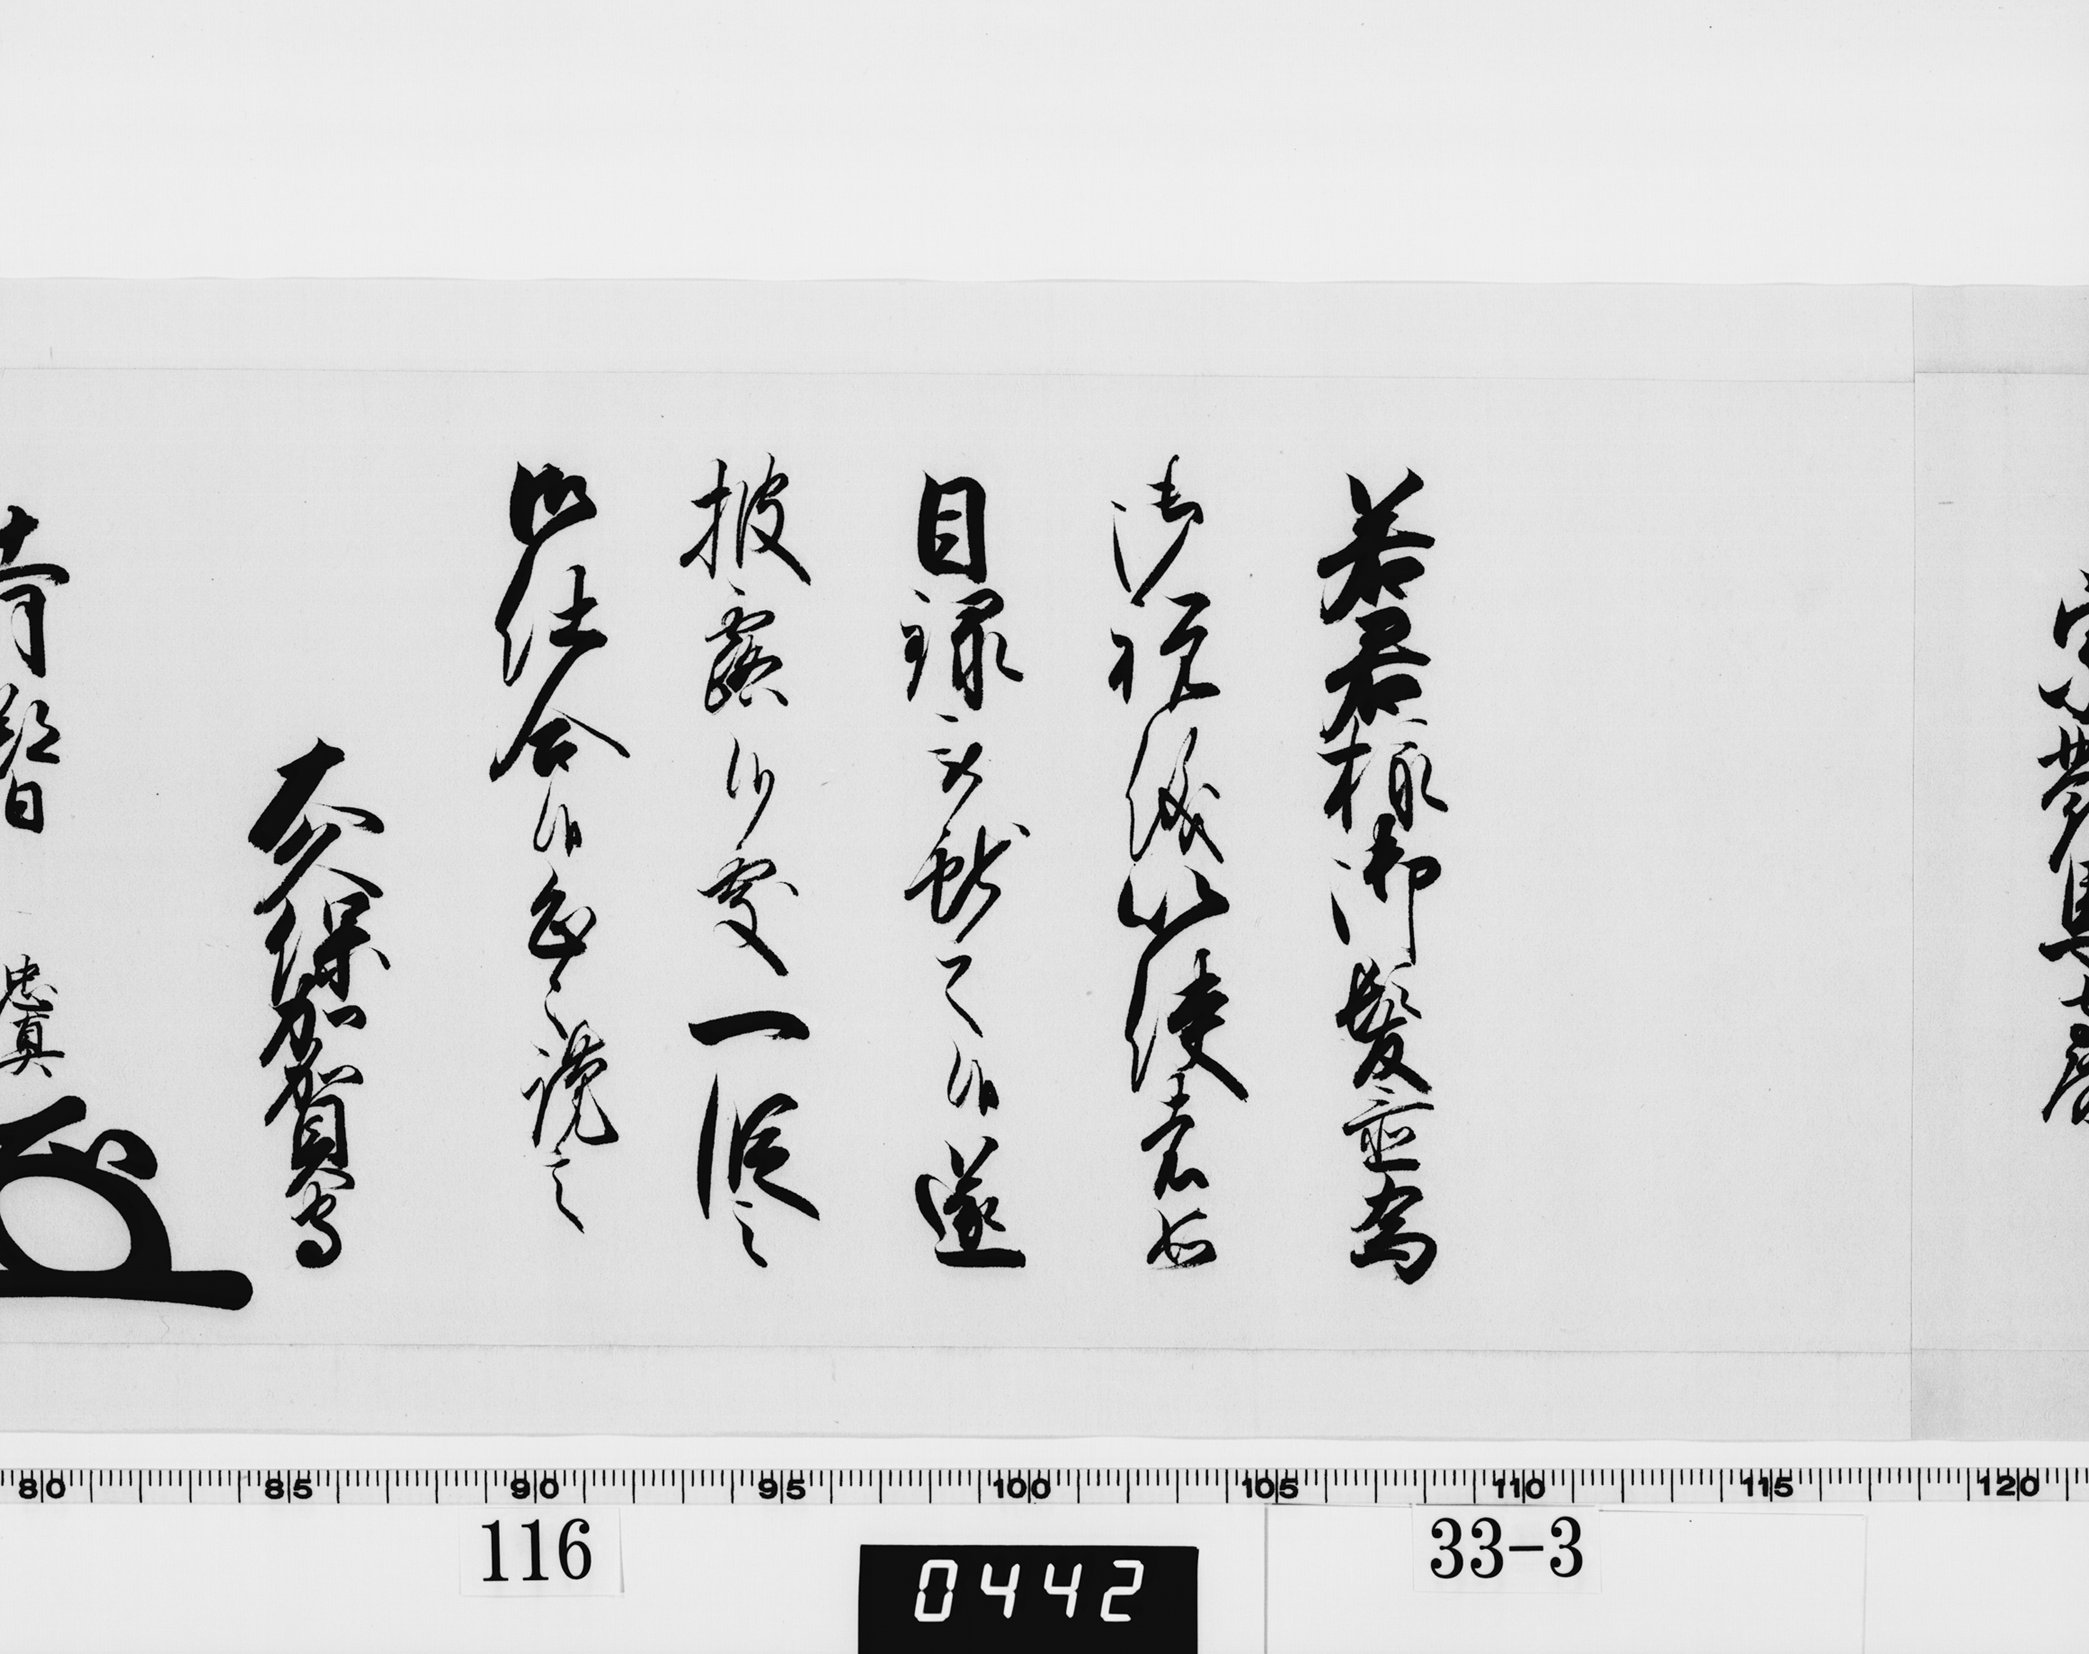 若君様御髪置為
御祝儀以使者如
目録被献之候遂
披露候処一段之
御仕合候恐々謹言
大久保加賀守
日 忠真
116
0442
33-3
80 85 90 95 100 105 110 115 120